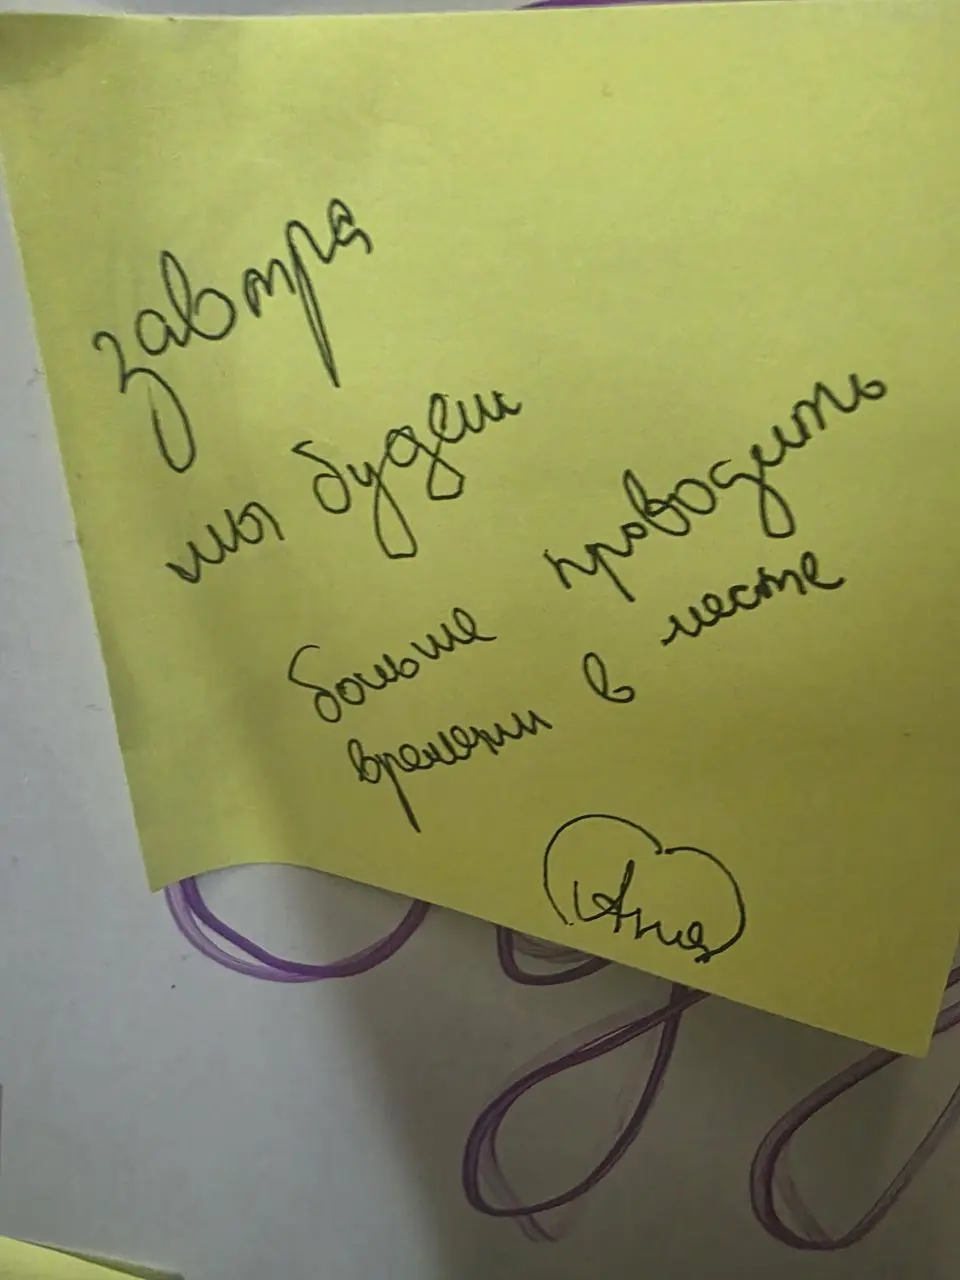 завтра
мы будем
больше проводить
времени в месте
Аня